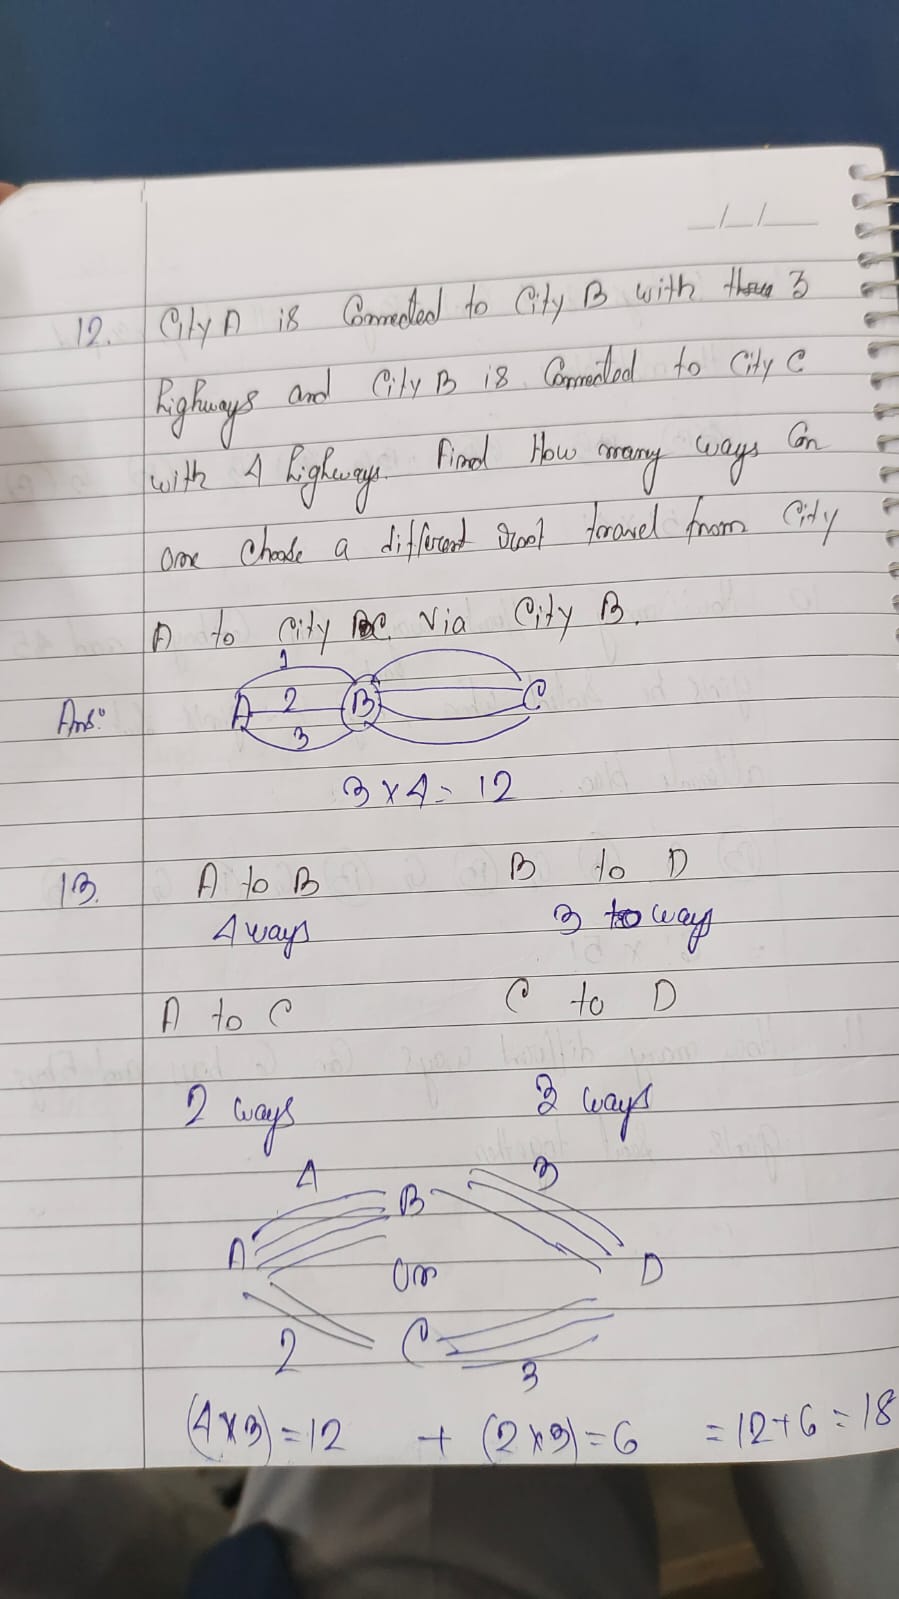 _/_/__
12. City A is Connected to City B with 3
highways and City B is Connected to City C
with 4 highways. Find How many ways Can
one Choose a different root travel from City
A to City C Via City B.
1
Ans: A 2 B C
3
3 x 4 = 12
13. A to B B to D
4 ways 3 ways
A to C C to D
2 ways 3 ways
4 3
B
A Or D
C
2 3
(4x3) = 12 + (2x3) = 6 = 12+6 = 18